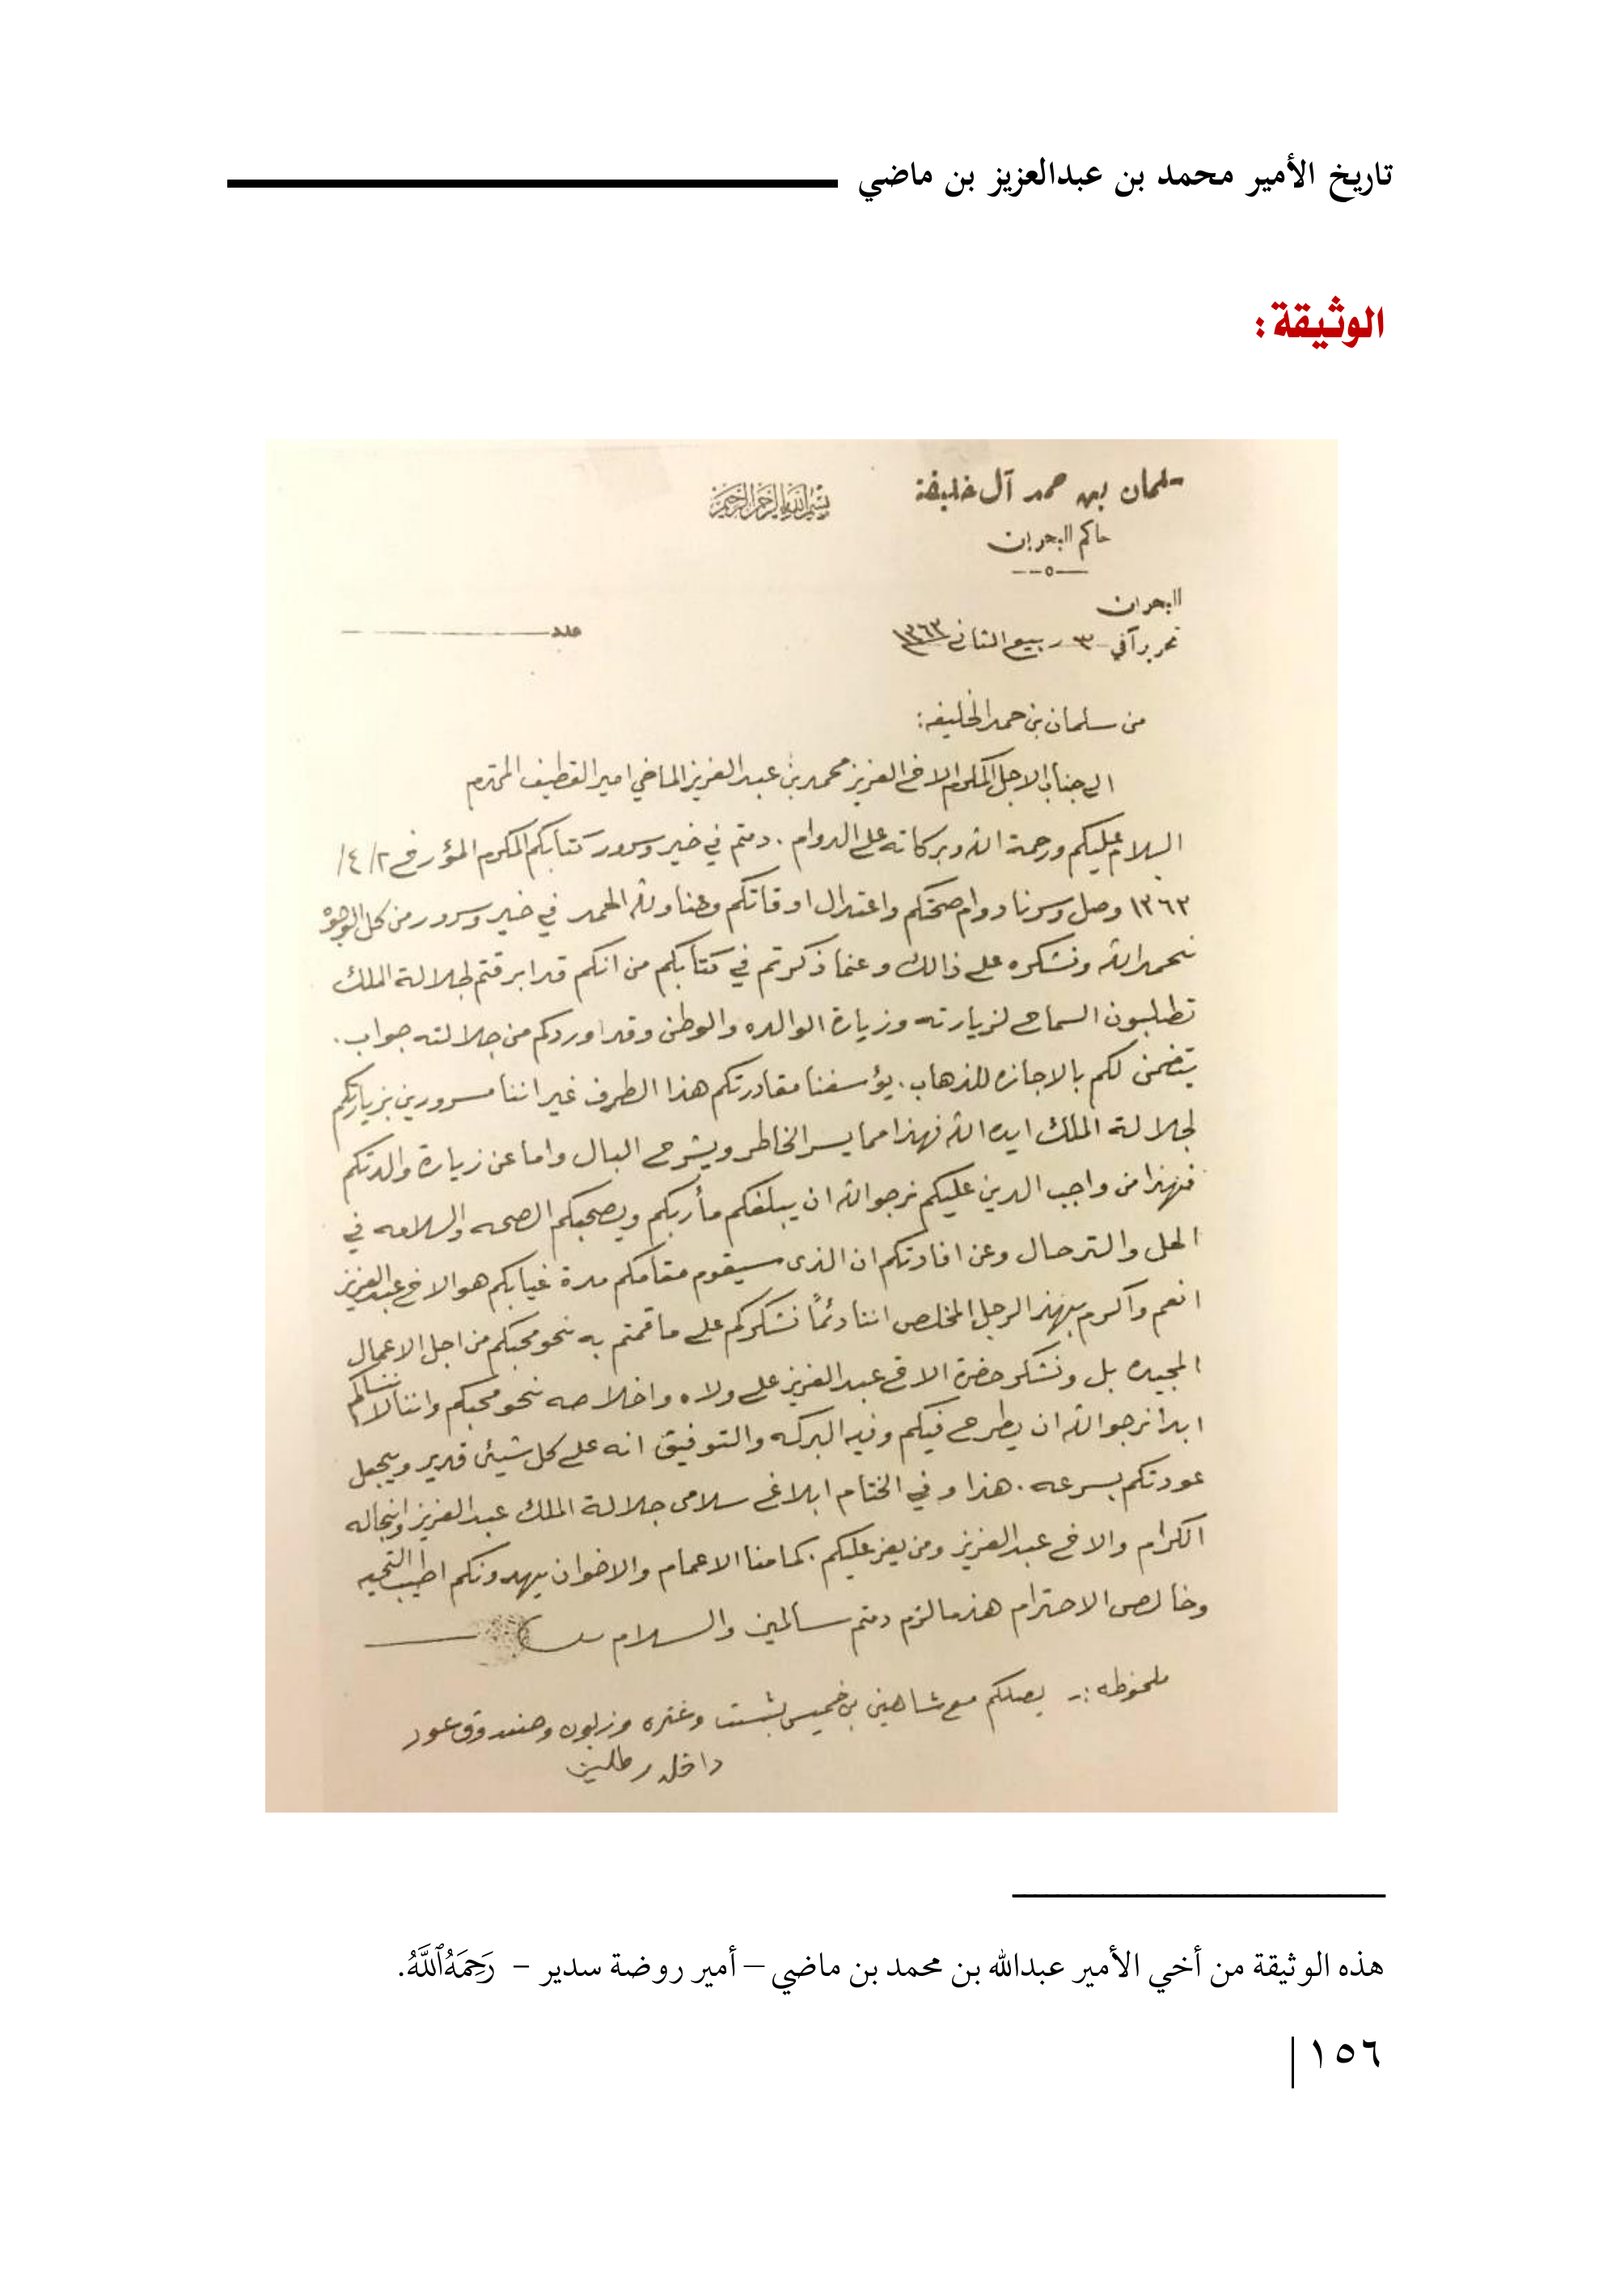 تاريخ الأمير محمد بن عبدالعزيز بن ماضي
الوثيقة:
سلمان بن حمد آل خليفة
بسم الله الرحمن الرحيم
حاكم البحرين
البحرين
عدد
تحريرآ في ٣ ربيع الثاني ١٣٦٣
من سلمان بن حمد الخليفه:
الى جناب الاجل المكرم الاخ العزيز محمد بن عبد العزيز الماضي امير القطيف المحترم
السلام عليكم ورحمة الله وبركاته على الدوام . دمتم في خير وسرور كتابكم المكرم المؤرخ ٢/٤/
١٣٦٣ وصل وسرنا دوام صحتكم واعتدال اوقاتكم وعنا ولله الحمد في خير وسرور من كل الوجوه
نحمد الله ونشكره على ذالك وعنما ذكرتم في كتابكم من انكم قد ابرقتم لجلالة الملك
تطلبون السماح لزيارته وزيارة الوالده والوطن وقد اوردكم من جلالته جواب .
يتضمن لكم بالاجازه للذهاب . يؤسفنا مقادرتكم هذا الطرف غير اننا مسرورين بزيارتكم
لجلالة الملك ايده الله فهذا مما يسر الخاطر ويشرح البال واما عن زيارة والدتكم
فهذا من واجب الدين عليكم نرجو الله ان يبلغكم مأربكم ويصحبكم الصحه والسلامه في
الحل والترحال وعن افادتكم ان الذى سيقوم مقامكم مدة غيابكم هو الاخ عبد العزيز
انعم واكرم بهذا الرجل المخلص اننا دئمًا نشكركم على ما قمتم به نحو محبكم من اجل الاعمال
المجيده بل ونشكر حضرة الاخ عبد العزيز على ولاه واخلاصه نحو محبكم واننا لا ننساكم
ابدا نرجو الله ان يطرح فيكم وفيه البركه والتوفيق انه على كل شيئ قدير ويجعل
عودتكم بسرعه . هذا وفي الختام ابلاغ سلامى جلالة الملك عبد العزيز وانجاله
الكرام والاخ عبد العزيز ومن يعز عليكم . كما منا الاعمام والاخوان يهدونكم اطيب التحيه
وخالص الاحترام هذ مالزم دمتم سالمين والسلام
ملحوظه :- يصلكم مع شاهين بن خميس بشت وغتره وزبون وصندوق عود
داخله رطلين
هذه الوثيقة من أخي الأمير عبدالله بن محمد بن ماضي – أمير روضة سدير – رَحِمَهُ ٱللَّهُ.
١٥٦